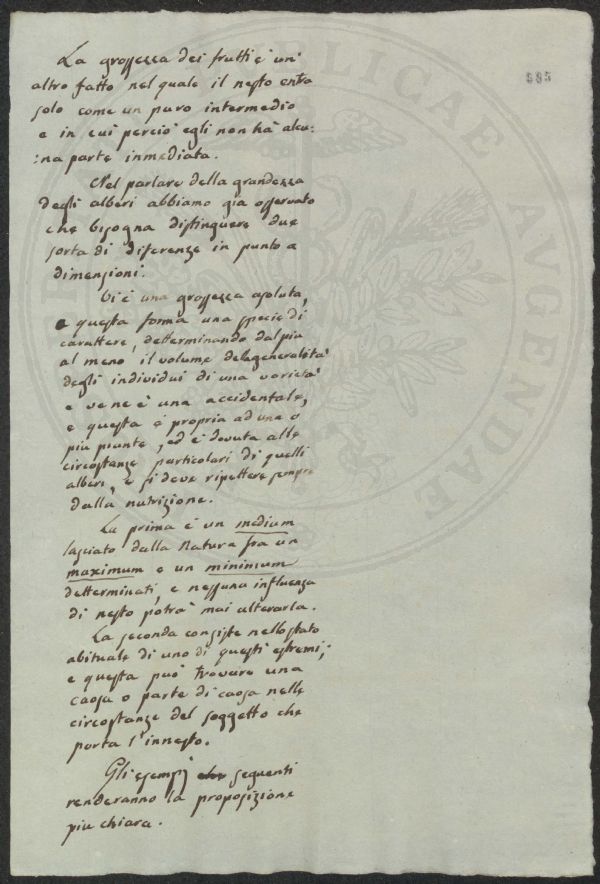 585
La grossezza dei frutti è un'
altro fatto nel quale il nesto entra
solo come un puro intermedio
e in cui perciò egli non ha alcu:
:na parte inmediata.
Nel parlare della grandezza
degli alberi abbiamo già osservato
che bisogna distinguere due
sorta di diferenze in punto a
dimensioni.
Vi è una grossezza asoluta,
e questa forma una specie di
carattere, detterminando dal più
al meno il volume dela generalità
degli individui di una varietà
e ve ne è una accidentale,
e questa è propria ad una o
più piante, ed è dovuta alle
circostanze particolari di quelli
alberi, e si deve ripettere sempre
dalla nutrizione.
La prima è un medium
lasciato dalla Natura fra un
maximum e un minimum
detterminati, e nessuna influenza
di nesto potrà mai alterarla.
La seconda consiste nello stato
abituale di uno di questi estremi;
e questa può trovare una
caosa o parte di caosa nelle
circostanze del soggetto che
porta l'innesto.
Gli esempj che seguenti
renderanno la proposizione
più chiara.
PUBLICAE
AUGENDAE